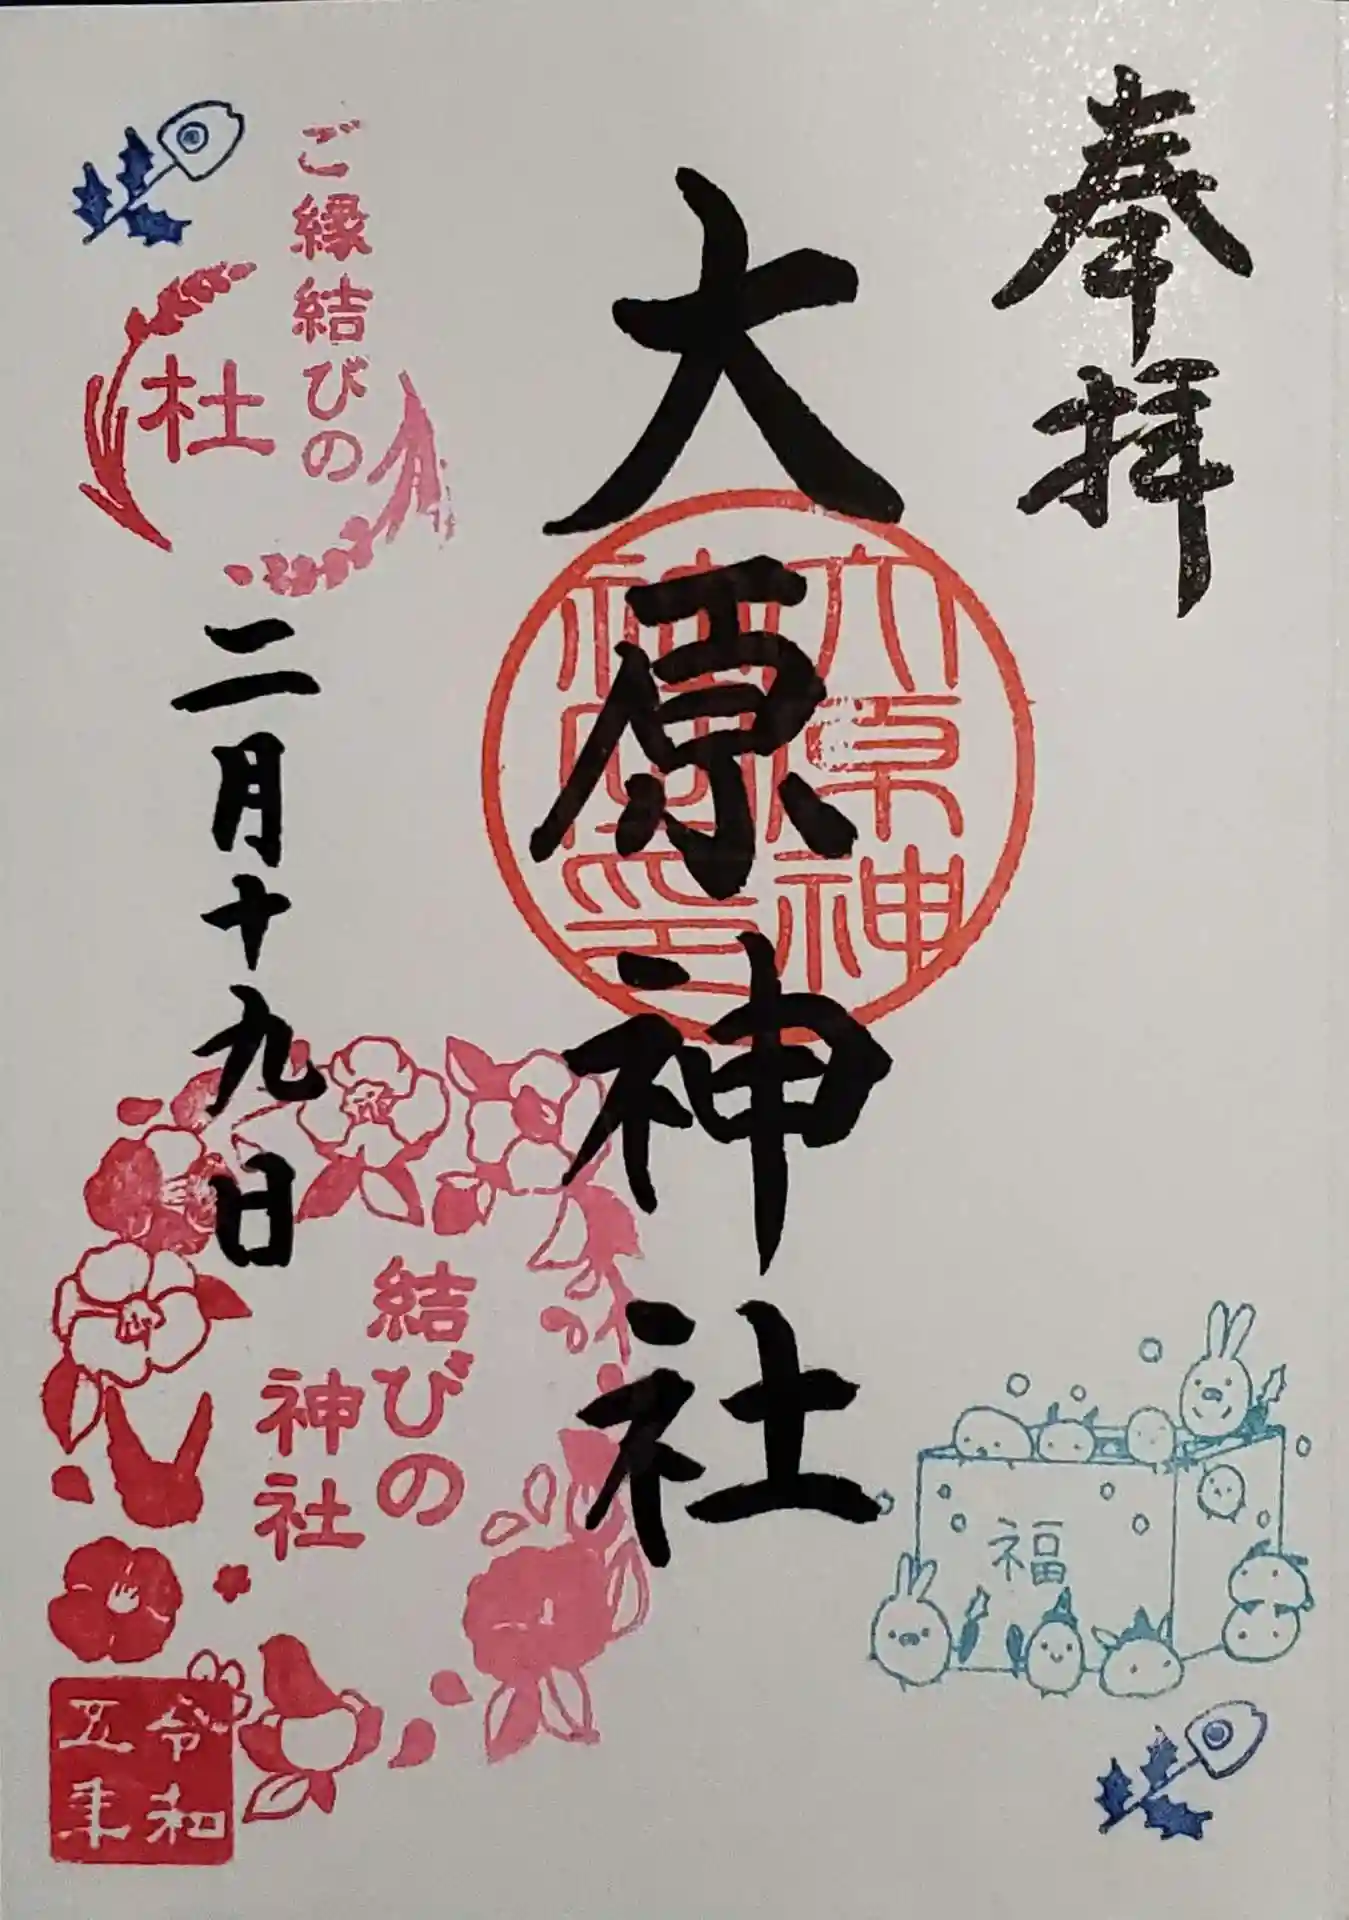 奉拝
大原神社
大原神
神社印
ご縁結びの
杜
二月十九日
結びの
神社
令和
五年
福